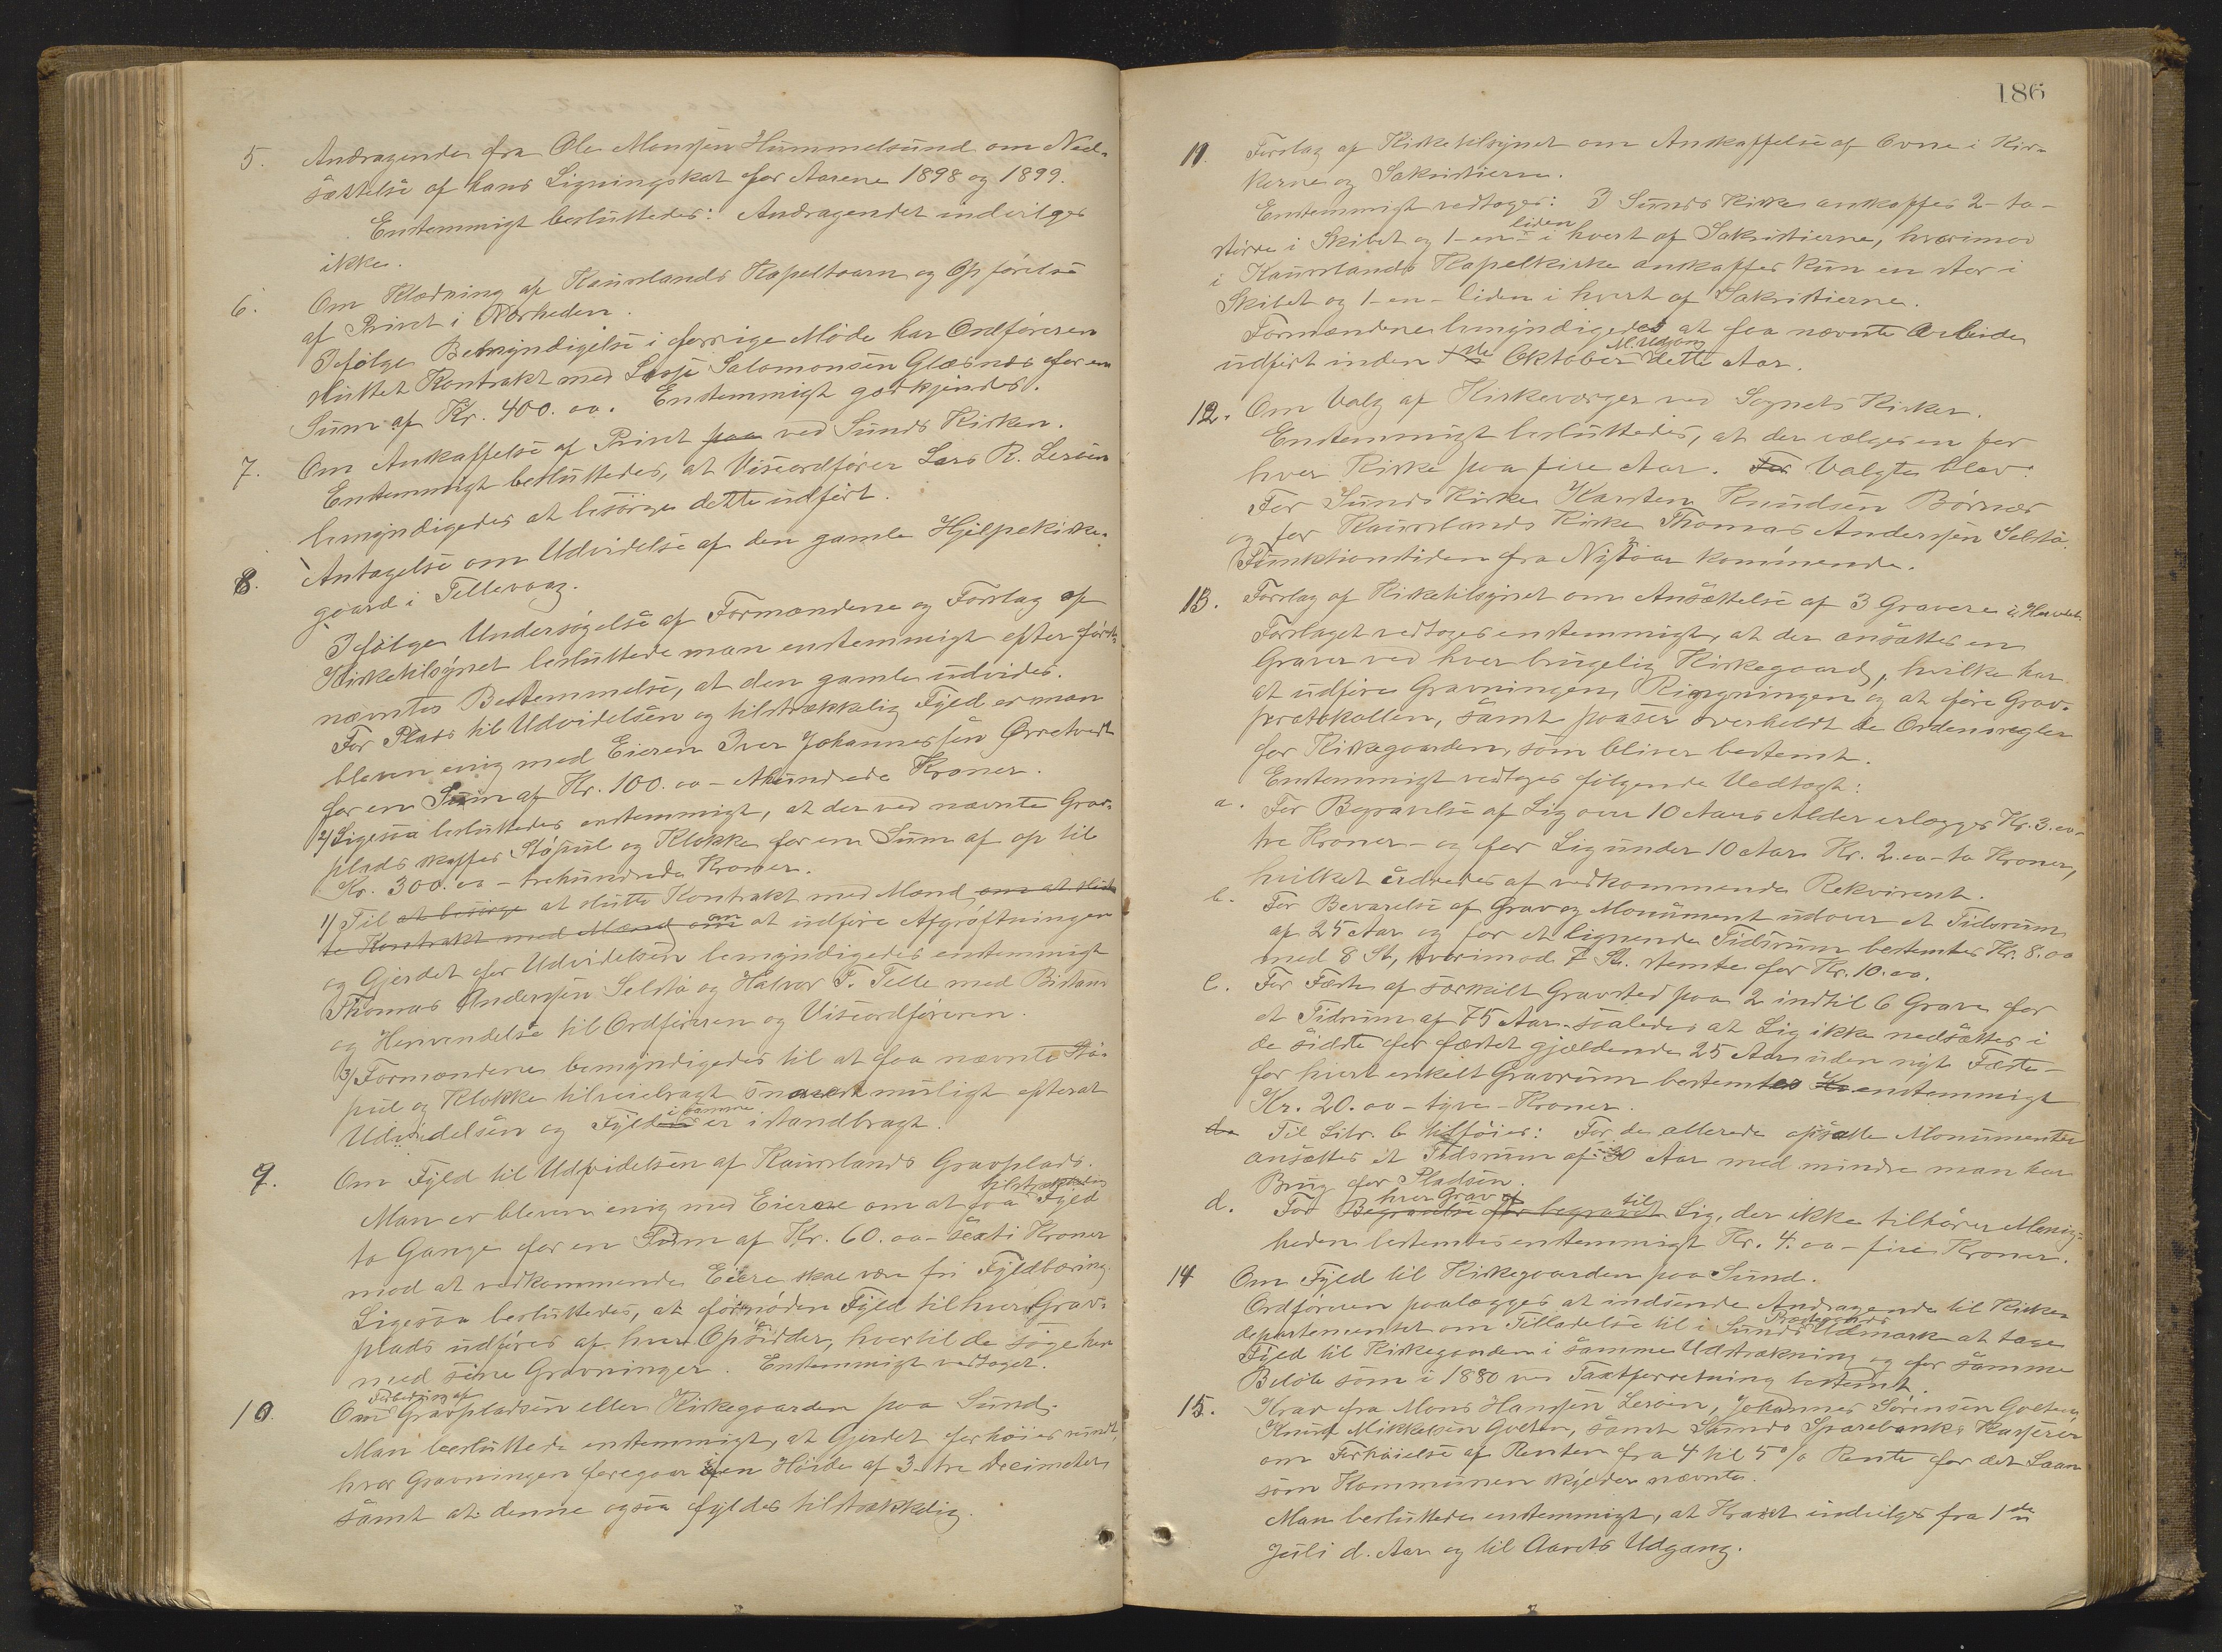 5. Andragende fra Ole Monssen Hummelsund om Ned-
sættelse af hans Ligningskat for Aarene 1898 og 1899.
Enstemmigt besluttedes: Andragendet indvilges
ikke.
6. Om Klædning af Kaurslands Kapeltaarn og Opförelse
af Privet i Nærheden.
Ifölge Bemyndigelse i forrige Möde har Ordföreren
sluttet Kontrakt med Lasse Salomonsen Glæsnes for en
Sum af Kr. 400.00. Enstemmigt godkjendes.
7. Om Anskaffelse af Privet paa ved Sunds Kirken.
Enstemmigt besluttedes, at Viseordförer Lars R. Leröen
bemyndigedes at besörge dette udfört.
8. Antagelse om Udvidelse af den gamle Hjelpekirke-
gaard i Tellevaag.
Ifölge Undersögelse af Formændene og Forslag af
Kirketilsynet besluttede man enstemmigt efter först-
nævntes Bestemmelse, at den gamle udvides.
For Plads til Udvidelsen og tilstrækkelig Fyld er man
bleven enig med Eieren Iver Johannessen Ørretvedt
for en Sum af Kr. 100.00 - ethundrede Kroner.
2/ Ligesaa besluttedes enstemmigt, at der ved nævnte Grav-
plads skaffes Stöpul og Klokke for en Sum af op til
Kr. 300.00 - trehundrede Kroner.
1/ Til at besörge at slutte Kontrakt med Mænd om at slut-
te Kontrakt med Mænd om om at udföre Afgröftningen
og Gjerdet for Udvidelsen bemyndigedes enstemmigt
Thomas Anderssen Selstö og Halvor T. Telle med Bistand
og Henvendelse til Ordföreren og Viseordföreren.
3/ Formændene bemyndigedes til at faa nævnte Stö-
pul og Klokke tilveiebragt snarest muligt efterat
Udvidelsen og Fylden i samme er istandbragt.
9. Om Fyld til Udvidelsen af Kaurslands Gravplads.
Man er bleven enig med Eierne om at faa tilstrækkelig Fyld
to Gange for en Sum af Kr. 60.00 - sexti Kroner
mod at vedkommende Eiere skal være fri Fyldbæring.
Ligesaa besluttedes, at fornöden Fyld til hver Grav-
plads udföres af hver Opsidder, hvortil de söge hen
med sine Gravninger. Enstemmigt vedtaget.
10. Om Forbedring af Gravpladsen eller Kirkegaarden paa Sund.
Man besluttede enstemmigt, at Gjerdet forhöies rundt,
hvor Gravningen foregaar i en Höide af 3 - tre Decimeter,
samt at denne ogsaa fyldes tilstrækkelig.
186
11. Forslag af Kirketilsynet om Anskaffelse af Ovne i Kir-
kerne og Sakristierne.
Enstemmigt vedtoges: I Sunds Kirke anskaffes 2 - to -
större i Skibet og 1 - en - liden i hvert af Sakristierne, hvorimod
i Kaurslands Kapelkirke anskaffes kun en stor i
Skibet og 1 - en - liden i hvert af Sakristierne.
Formændene bemyndigedes at faa nævnte Arbeide
udfört inden 1ste Oktober Udgang dette Aar.
12. Om Valg af Kirkeværger ved Sognets Kirker.
Enstemmigt besluttedes, at der vælges en for
hver Kirke paa fire Aar. For Valgte blev:
For Sunds Kirke Karsten Knudsen Börnæs
og for Kaurslands Kirke Thomas Anderssen Selstö.
Funktionstiden fra Nytaar kommende.
13. Forslag af Kirketilsynet om Ansættelse af 3 Gravere i Herredet
Forslaget vedtoges enstemmigt, at der ansættes en
Graver ved hver brugelig Kirkegaard, hvilke har
at udföre Gravningen, Ringningen og at före Grav-
protokollen, samt paaser overholdt de Ordensregler
for Kirkegaarden, som bliver bestemt.
Enstemmigt vedtoges fölgende Vedtægt:
a. For Begravelse af Lig over 10 Aars Alder erlægges Kr. 3.00 -
tre Kroner - og for Lig under 10 Aar Kr. 2.00 - to Kroner,
hvilket udredes af vedkommende Rekvirent.
b. For Bevarelse af Grav og Monument udover et Tidsrum
af 25 Aar og for et lignende Tidsrum bestemtes Kr. 8.00
med 8 St., hvorimod 7 St. stemte for Kr. 10.00.
c. For Fæste af særskilt Gravsted paa 2 indtil 6 Grave for
et Tidsrum af 75 Aar - saaledes at Lig ikke nedsættes i
de sidste for fæstet gjældende 25 Aar uden nyt Fæste -
for hvert enkelt Gravrum bestemtes Kr enstemmigt
Kr. 20.00 - tyve - Kroner.
Til Litr. b tilföies: For de allerede opsatte Monumenter
ansættes et Tidsrum af 30 Aar med mindre man har
Brug for Pladsen.
d. For Begravelse for begravet hver Grav til Lig, der ikke tilhörer Menig-
heden bestemtes enstemmigt Kr. 4.00 - fire Kroner.
14 Om Fyld til Kirkegaarden paa Sund.
Ordföreren paalægges at indsende Andragende til Kirke-
departementet om Tilladelse til i Sunds Præstegaards Udmark at tage
Fyld til Kirkegaarden i samme Udstrækning og for samme
Belöb som i 1880 ved Taxtforretning bestemt.
15. Krav fra Mons Hanssen Leröen, Johannes Sörensen Golten,
Knut Mikkelsen Golten, samt Sunds Sparebanks Kasserer
om Forhöielse af Renten fra 4 til 5 % Rente for det Laan
som Kommunen skylder nævnte.
Man besluttede enstemmigt, at Kravet indvilges fra 1de
Juli d. Aar og til Aarets Udgang.